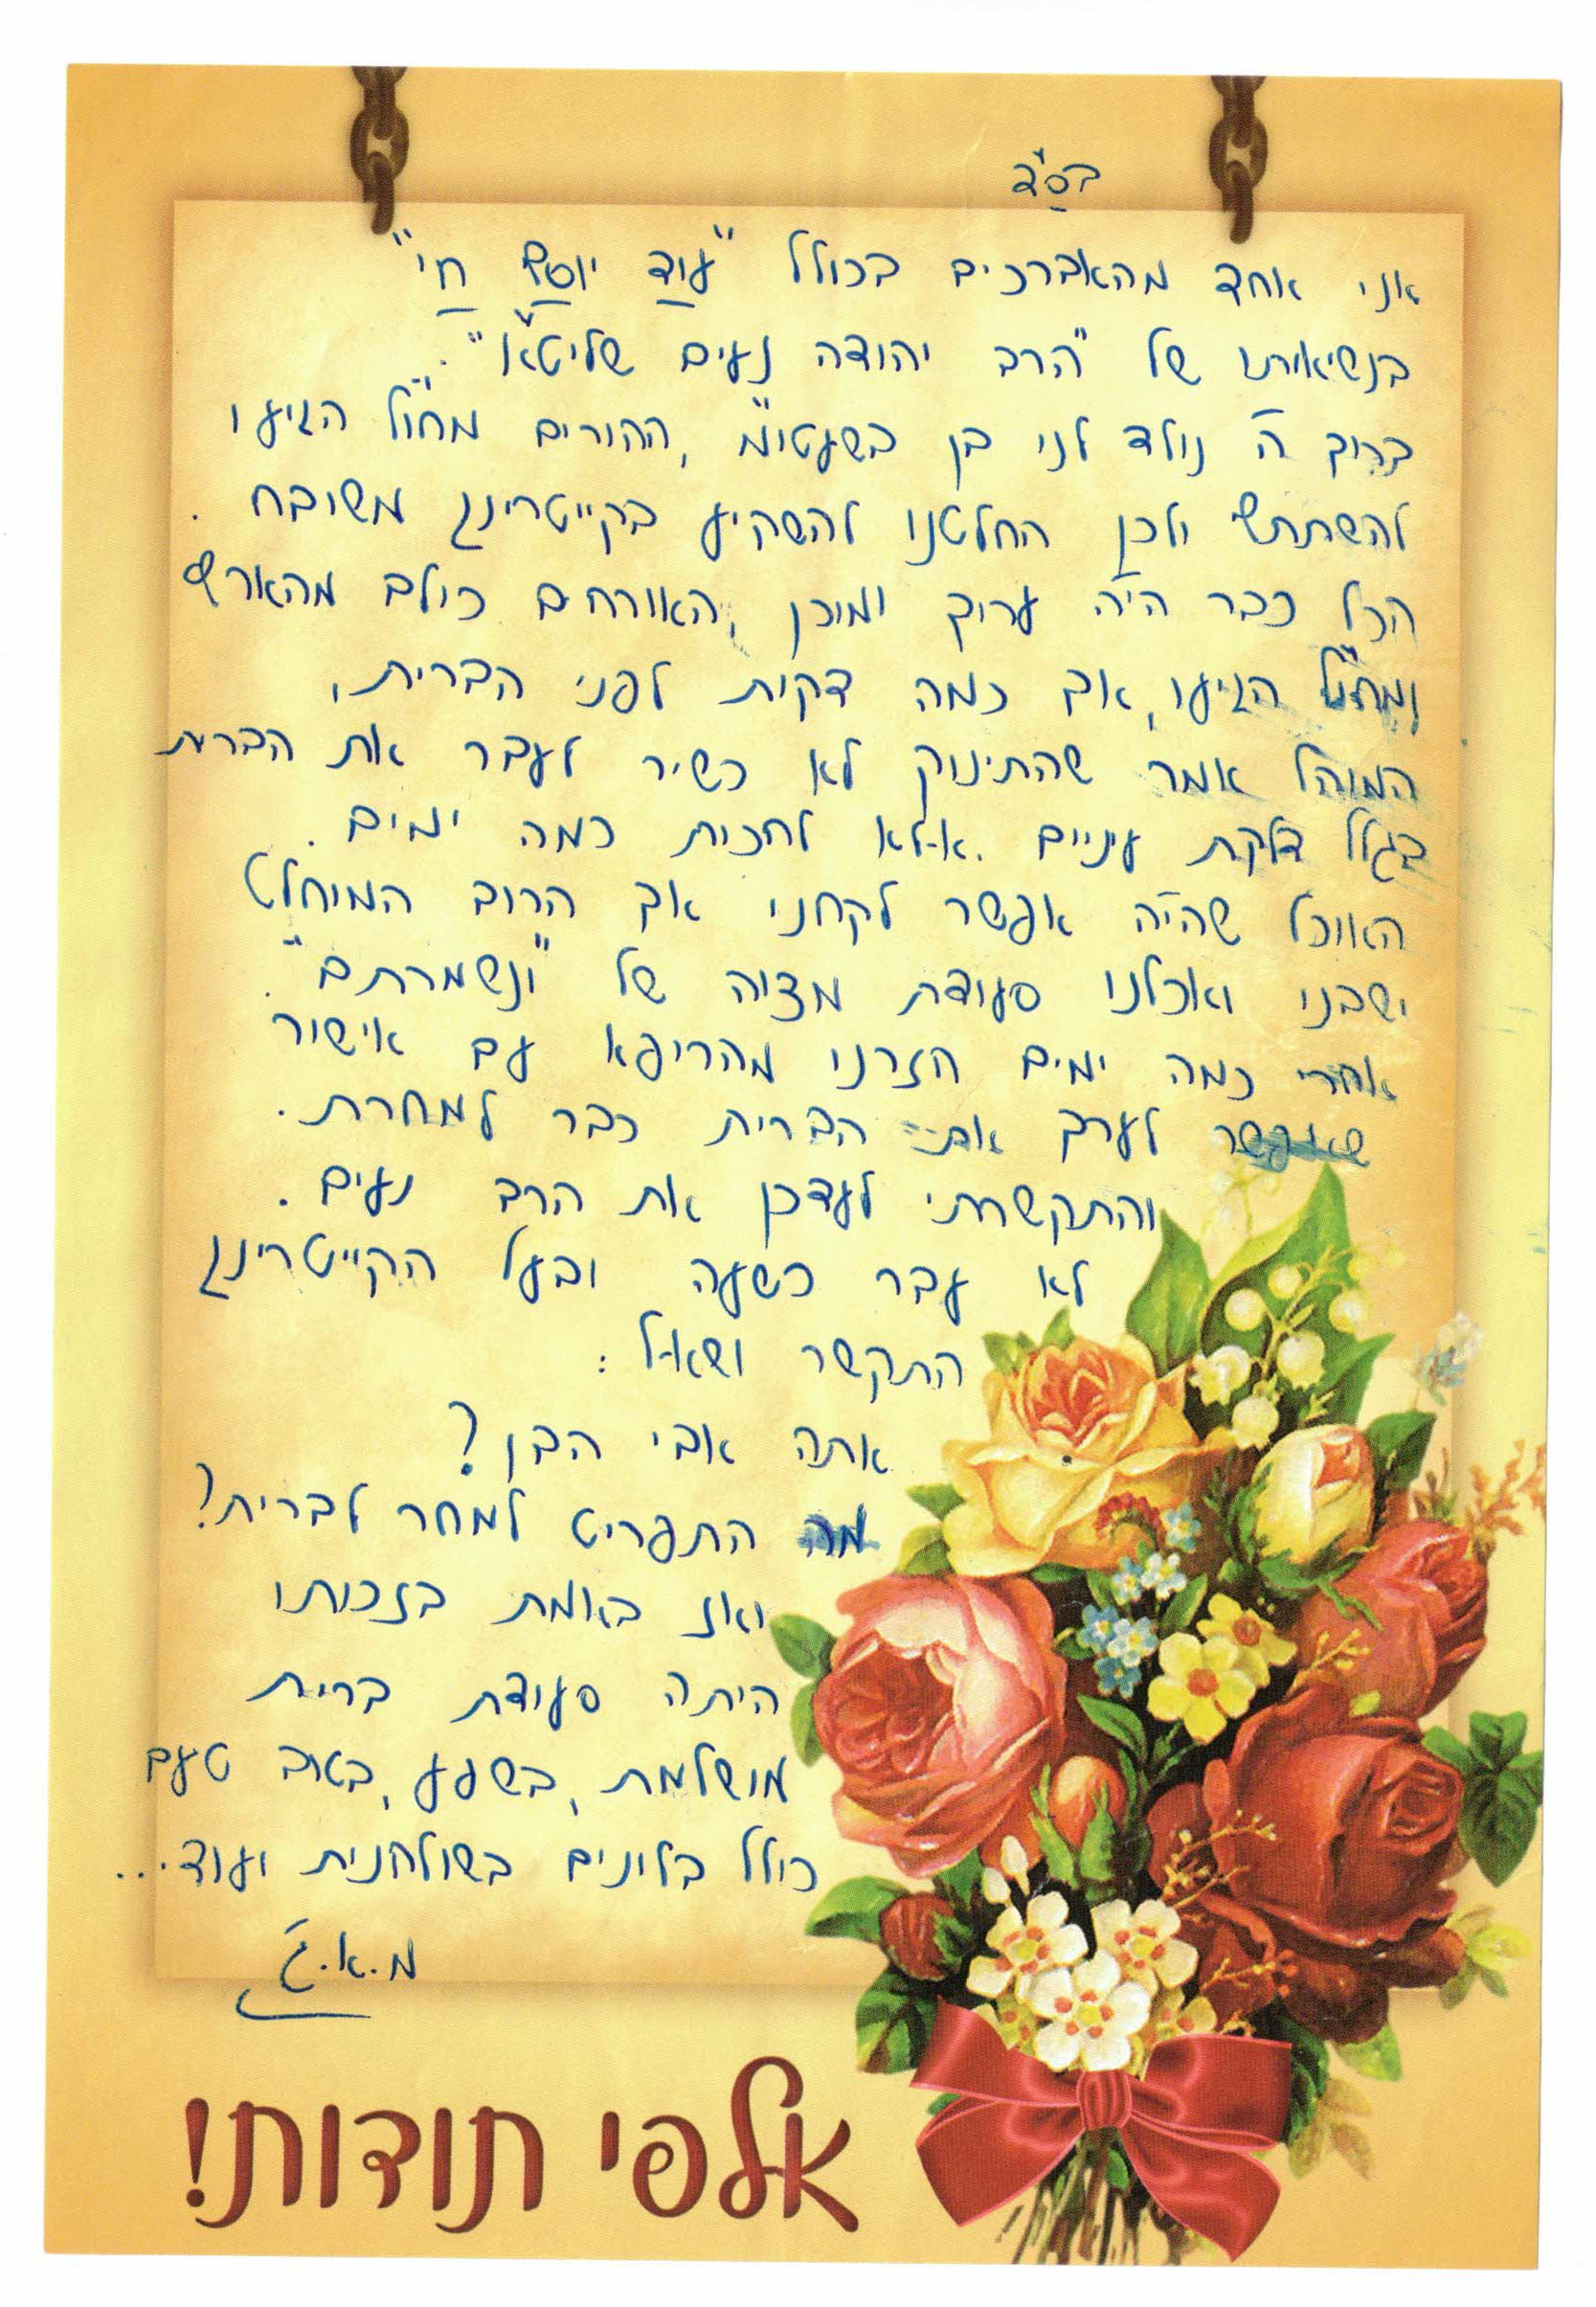 בס"ד
אני אחד מהאברכים בכולל "עוד יוסף חי"
בנשיאותו של "הרב יהודה נעים שליט"א".
ברוך ה' נולד לני בן בשעטו"מ, ההורים מחו"ל הגיעו
להשתתף ולכן החלטנו להשקיע בקייטרינג משובח.
הכל כבר הי'ה ערוך ומוכן, האורחים כולם מהארץ
ומחו"ל הגיעו, אך כמה דקות לפני הברית,
המוהל אמר שהתינוק לא כשיר לעבר את הברית
בגלל דלקת עיניים. אלא לחכות כמה ימים.
האוכל שהי'ה אפשר לקחנו אך הרוב המוחלט
ישבנו ואכלנו סעודת מצוה של "ונשמרתם".
אחרי כמה ימים חזרנו מהריפא עם אישור
שאפשר לערך את הברית כבר למחרת.
והתקשרתי לעדכן את הרב נעים.
לא עבר כשעה ובעל הקייטרינג
התקשר ושאל:
אתה אבי הבן?
מה התפריט למחר לברית?
ואנ באמת בזכותו
היתה סעודת ברית
מושלמת, בשפע, בטוב טעם
כולל בלונים בשולחנות ועוד...
מ.א.ג'
אלפי תודות!